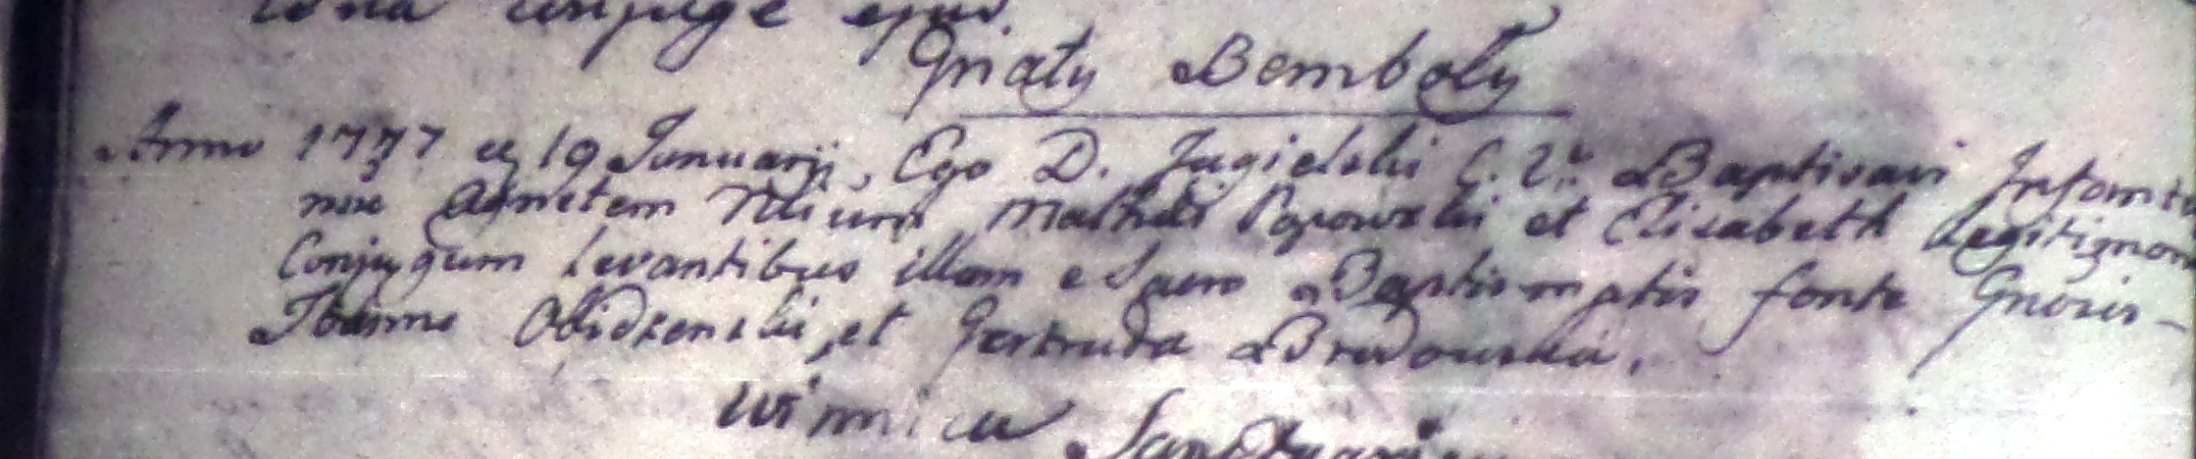 conjuge ejus
Gniaty Bemboły
Anno 1777 19 Januarij, Ego D. Jagielski C. V. Baptisavi Infantem
noie Agnetem Mathei Popowski et Elisabeth Legitimorum
Conjugum Levantibus illam e Sacro Baptismatis fonte Gnosis-
Joanne et Gertruda Bredowska,
Winnica